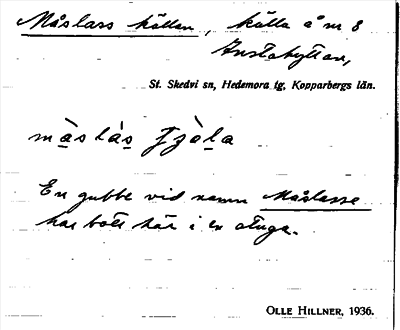 Måslass källan, källa å nr 8
Anstahyttan,
St. Skedvi sn, Hedemora tg, Kopparbergs län.
En gubbe vid namn Måslasse
har bott här i en stuga.
OLLE HILLNER, 1936.